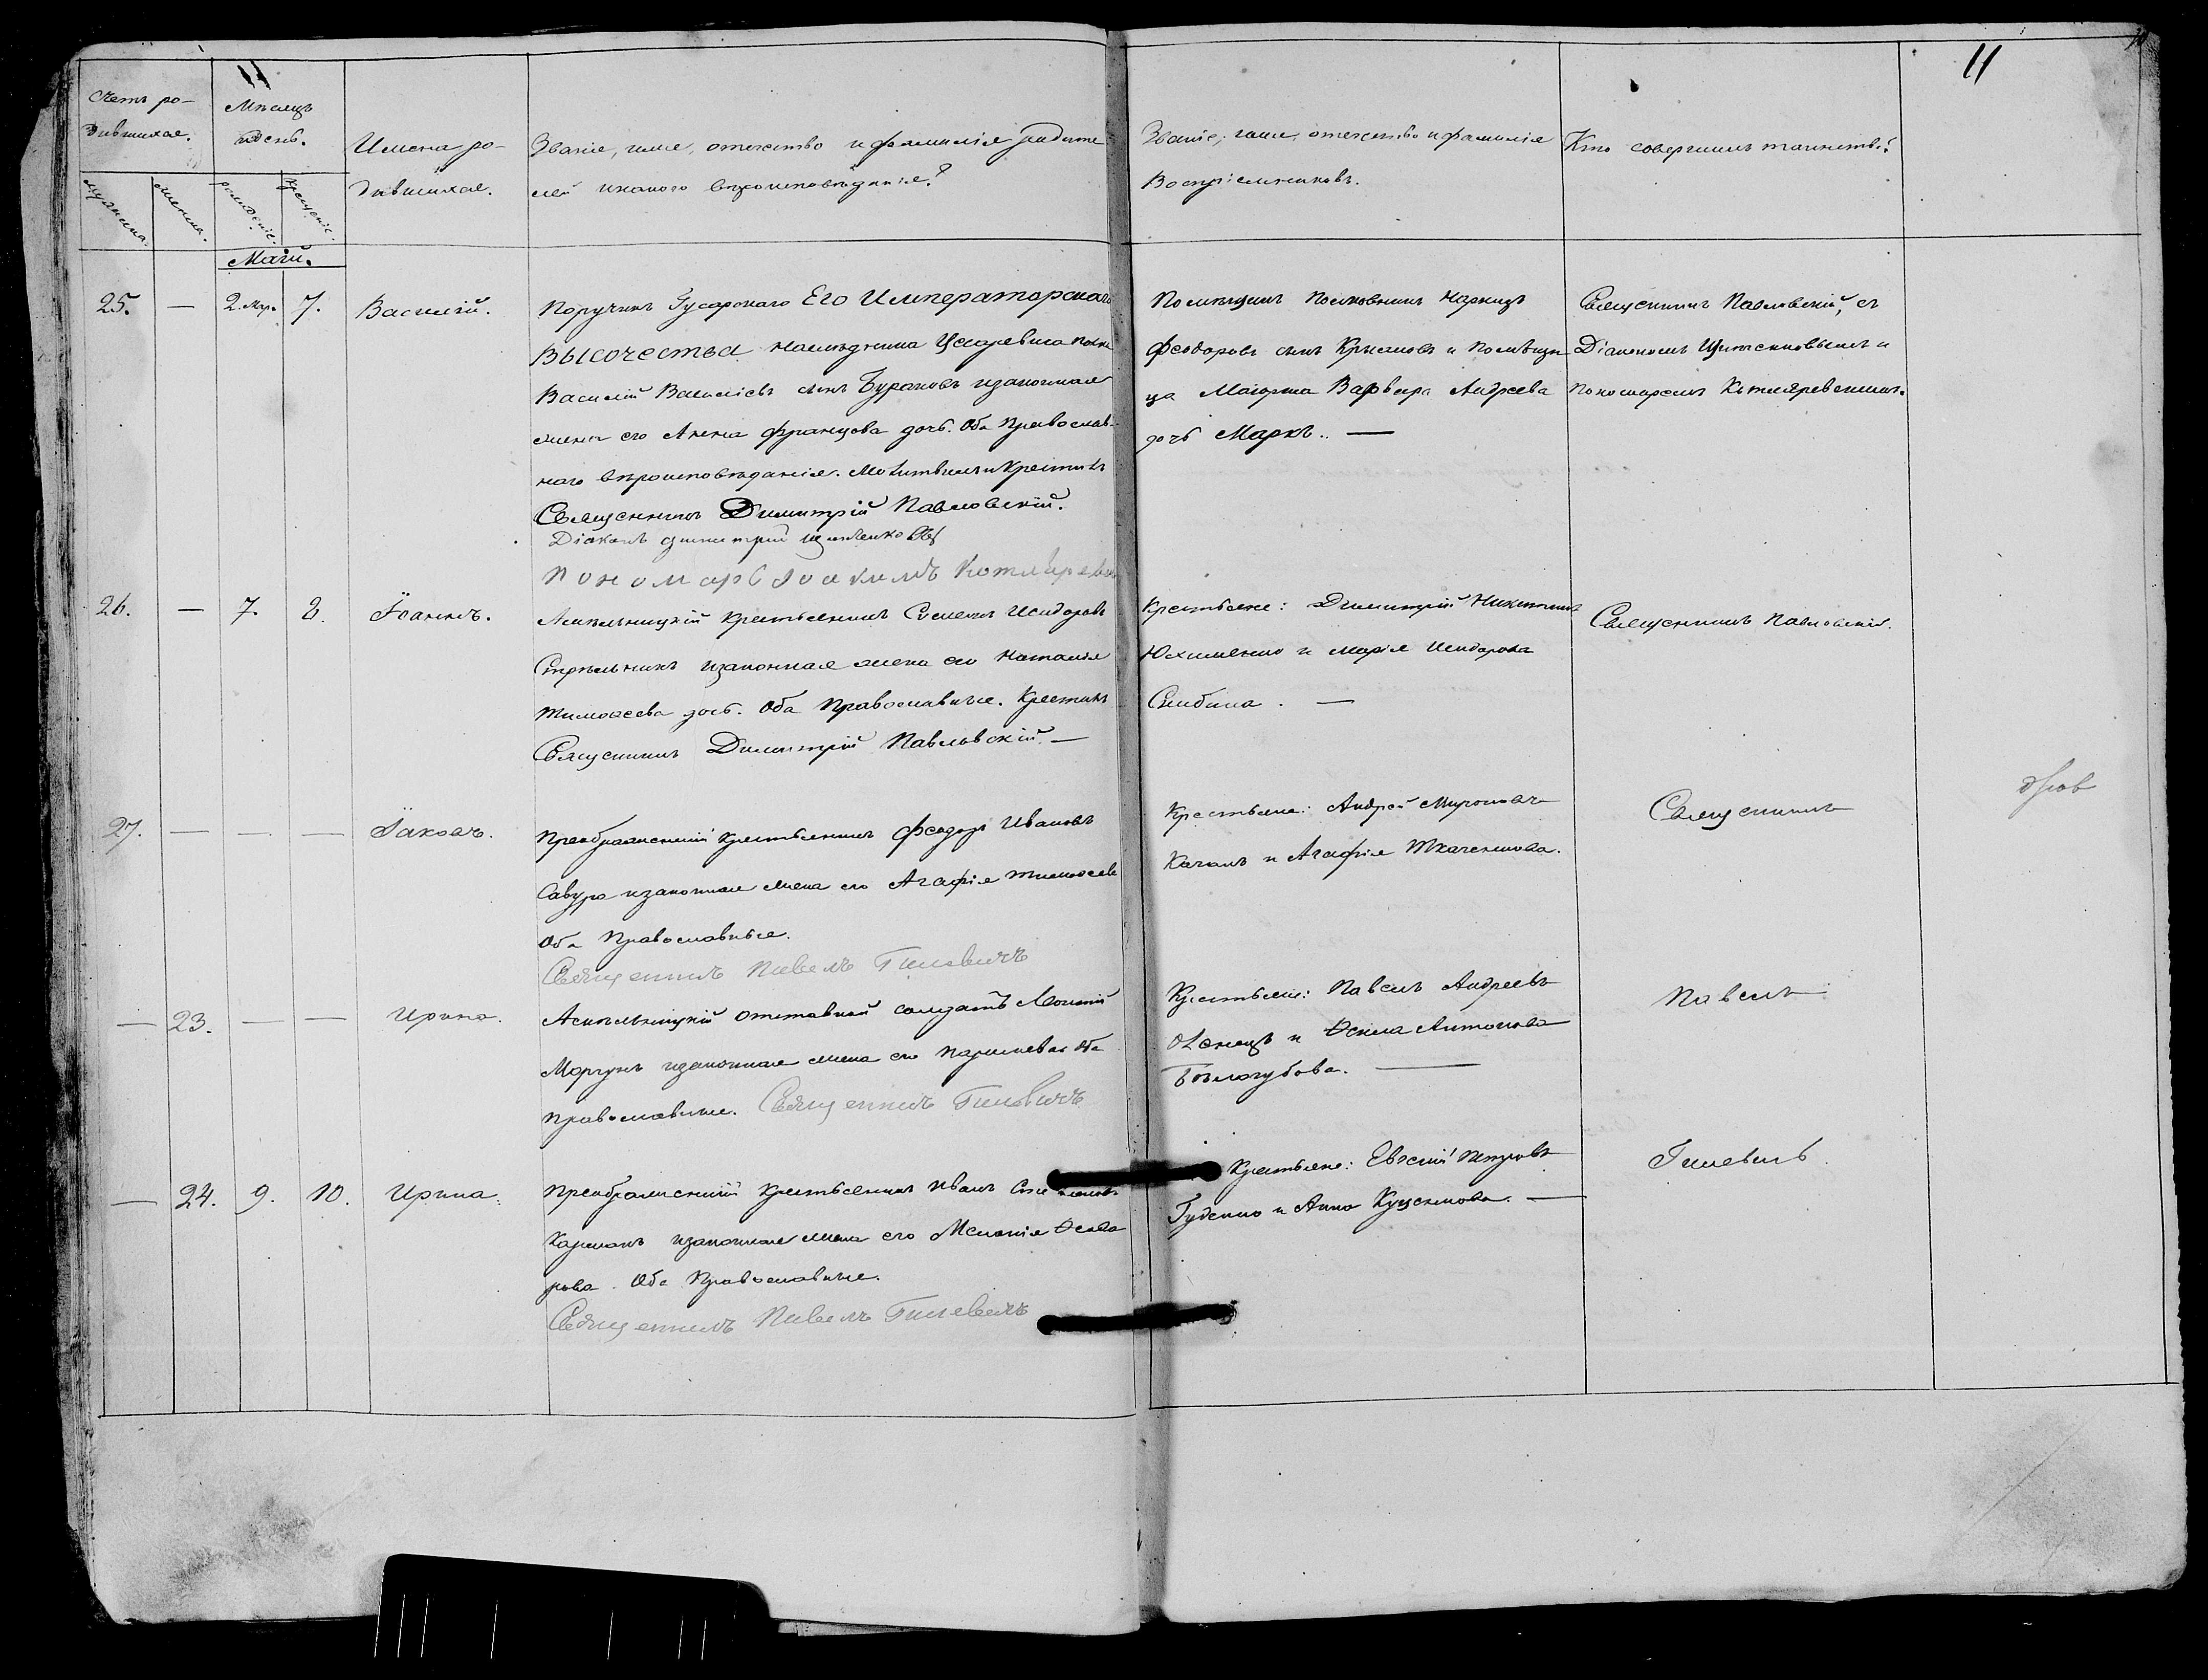 11
11
Счетъ ро-
дившихся.
Мѣсяцъ
и день.
Имена ро-
дившихся.
Званіе, имя, отечество и фамилія родите
лей и какого вѣроисповѣданія?
Званіе, имя, отечество и фамилія
Воспріемниковъ.
Кто совершилъ таинство?
мужеска.
женска.
рожденіе.
крещеніе.
Маій.
25. — 2. Мар. 7. Василій.
Поручикъ Гусарскаго Его Императорскаго
Высочества Наслѣдника Цесаревича полка
Василій Васильевъ сынъ Бураковъ и законная
жена его Анна Францова дочь. Оба Православ-
наго вѣроисповѣданія. Молитвилъ и Крестилъ
Священникъ Димитрій Павловскій.
Діаконъ Димитрій
Пономарь Іоакимъ Котляревс
Помѣщикъ Полковникъ
Феодоровъ сынъ и Помѣщи
ца Маіорша Варвара Андреева
дочь Маркъ. —
Священникъ Павловскій, съ
Діакономъ и
Пономаремъ Котляревскимъ.
26. — 7. 8. Іоаннъ.
крестьянинъ Семенъ Исидоровъ
Стрѣльникъ и законная жена его Наталія
Тимоѳеева дочь. Оба Православные. Крестилъ
Священникъ Димитрій Павловскій. —
Крестьяне: Димитрій Никитинъ
Юхименко и Марія Исидорова
. —
Священникъ Павловскій.
27. — — — Іаковъ.
Преображенскій крестьянинъ Феодоръ Ивановъ
Савура и законная жена его Агафія Тимоѳеева
Оба Православные.
Священникъ Павелъ Гилевичъ
Крестьяне: Андрей Мироновъ
Качанъ и Агафія Ткаченкова.
Священникъ
— 23. — — Ирина.
отставной солдатъ Леонтій
Моргунъ и законная жена его Параскева Оба
Православные. Священникъ Гилевичъ
Крестьяне: Павелъ Андреевъ
и Антонова
Бѣлогубова. —
Павелъ
— 24. 9. 10. Ирина.
Преображенскій крестьянинъ Иванъ
и законная жена его Меланія Ѳеодо
рова. Оба Православные.
Священникъ Павелъ Гилевичъ
Крестьяне: Евсей Петровъ
Гуденко и Анна Куценкова. —
Гилевичъ.